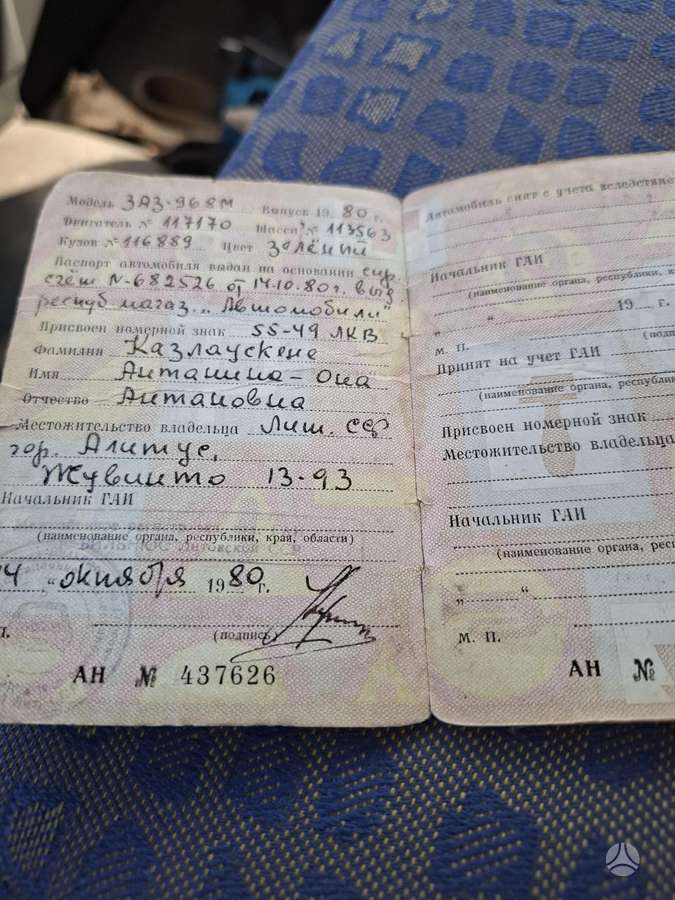 Модель ЗАЗ-968М Выпуск 19 80 г.
Двигатель № 117170 Шасси № 113563
Кузов № 116889 Цвет Зелёный
Паспорт автомобиля выдан на основании спр.
счёт N-682526 от 14.10.80 г. выд.
респуб магаз. „Автомобили"
Присвоен номерной знак 55-49 ЛКВ
Фамилия Казлаускене
Имя Антанина-Она
Отчество Антановна
Местожительство владельца Лит. ССР
гор. Алитус,
Жувинто 13-93
Начальник ГАИ
(наименование органа, республики, края, области)
ВИЛЬНЮС Литовской ССР
14 „октября 1980 г.
(подпись)
АН № 437626
Автомобиль снят с учета вследствие
Начальник ГАИ
(наименование органа, республики, к
„ “ 19 г.
м. п. (подп
Принят на учет ГАИ
(наименование органа, республик
Присвоен номерной знак
Местожительство владельца
Начальник ГАИ
(наименование органа, респ
„ “
м. п.
АН №